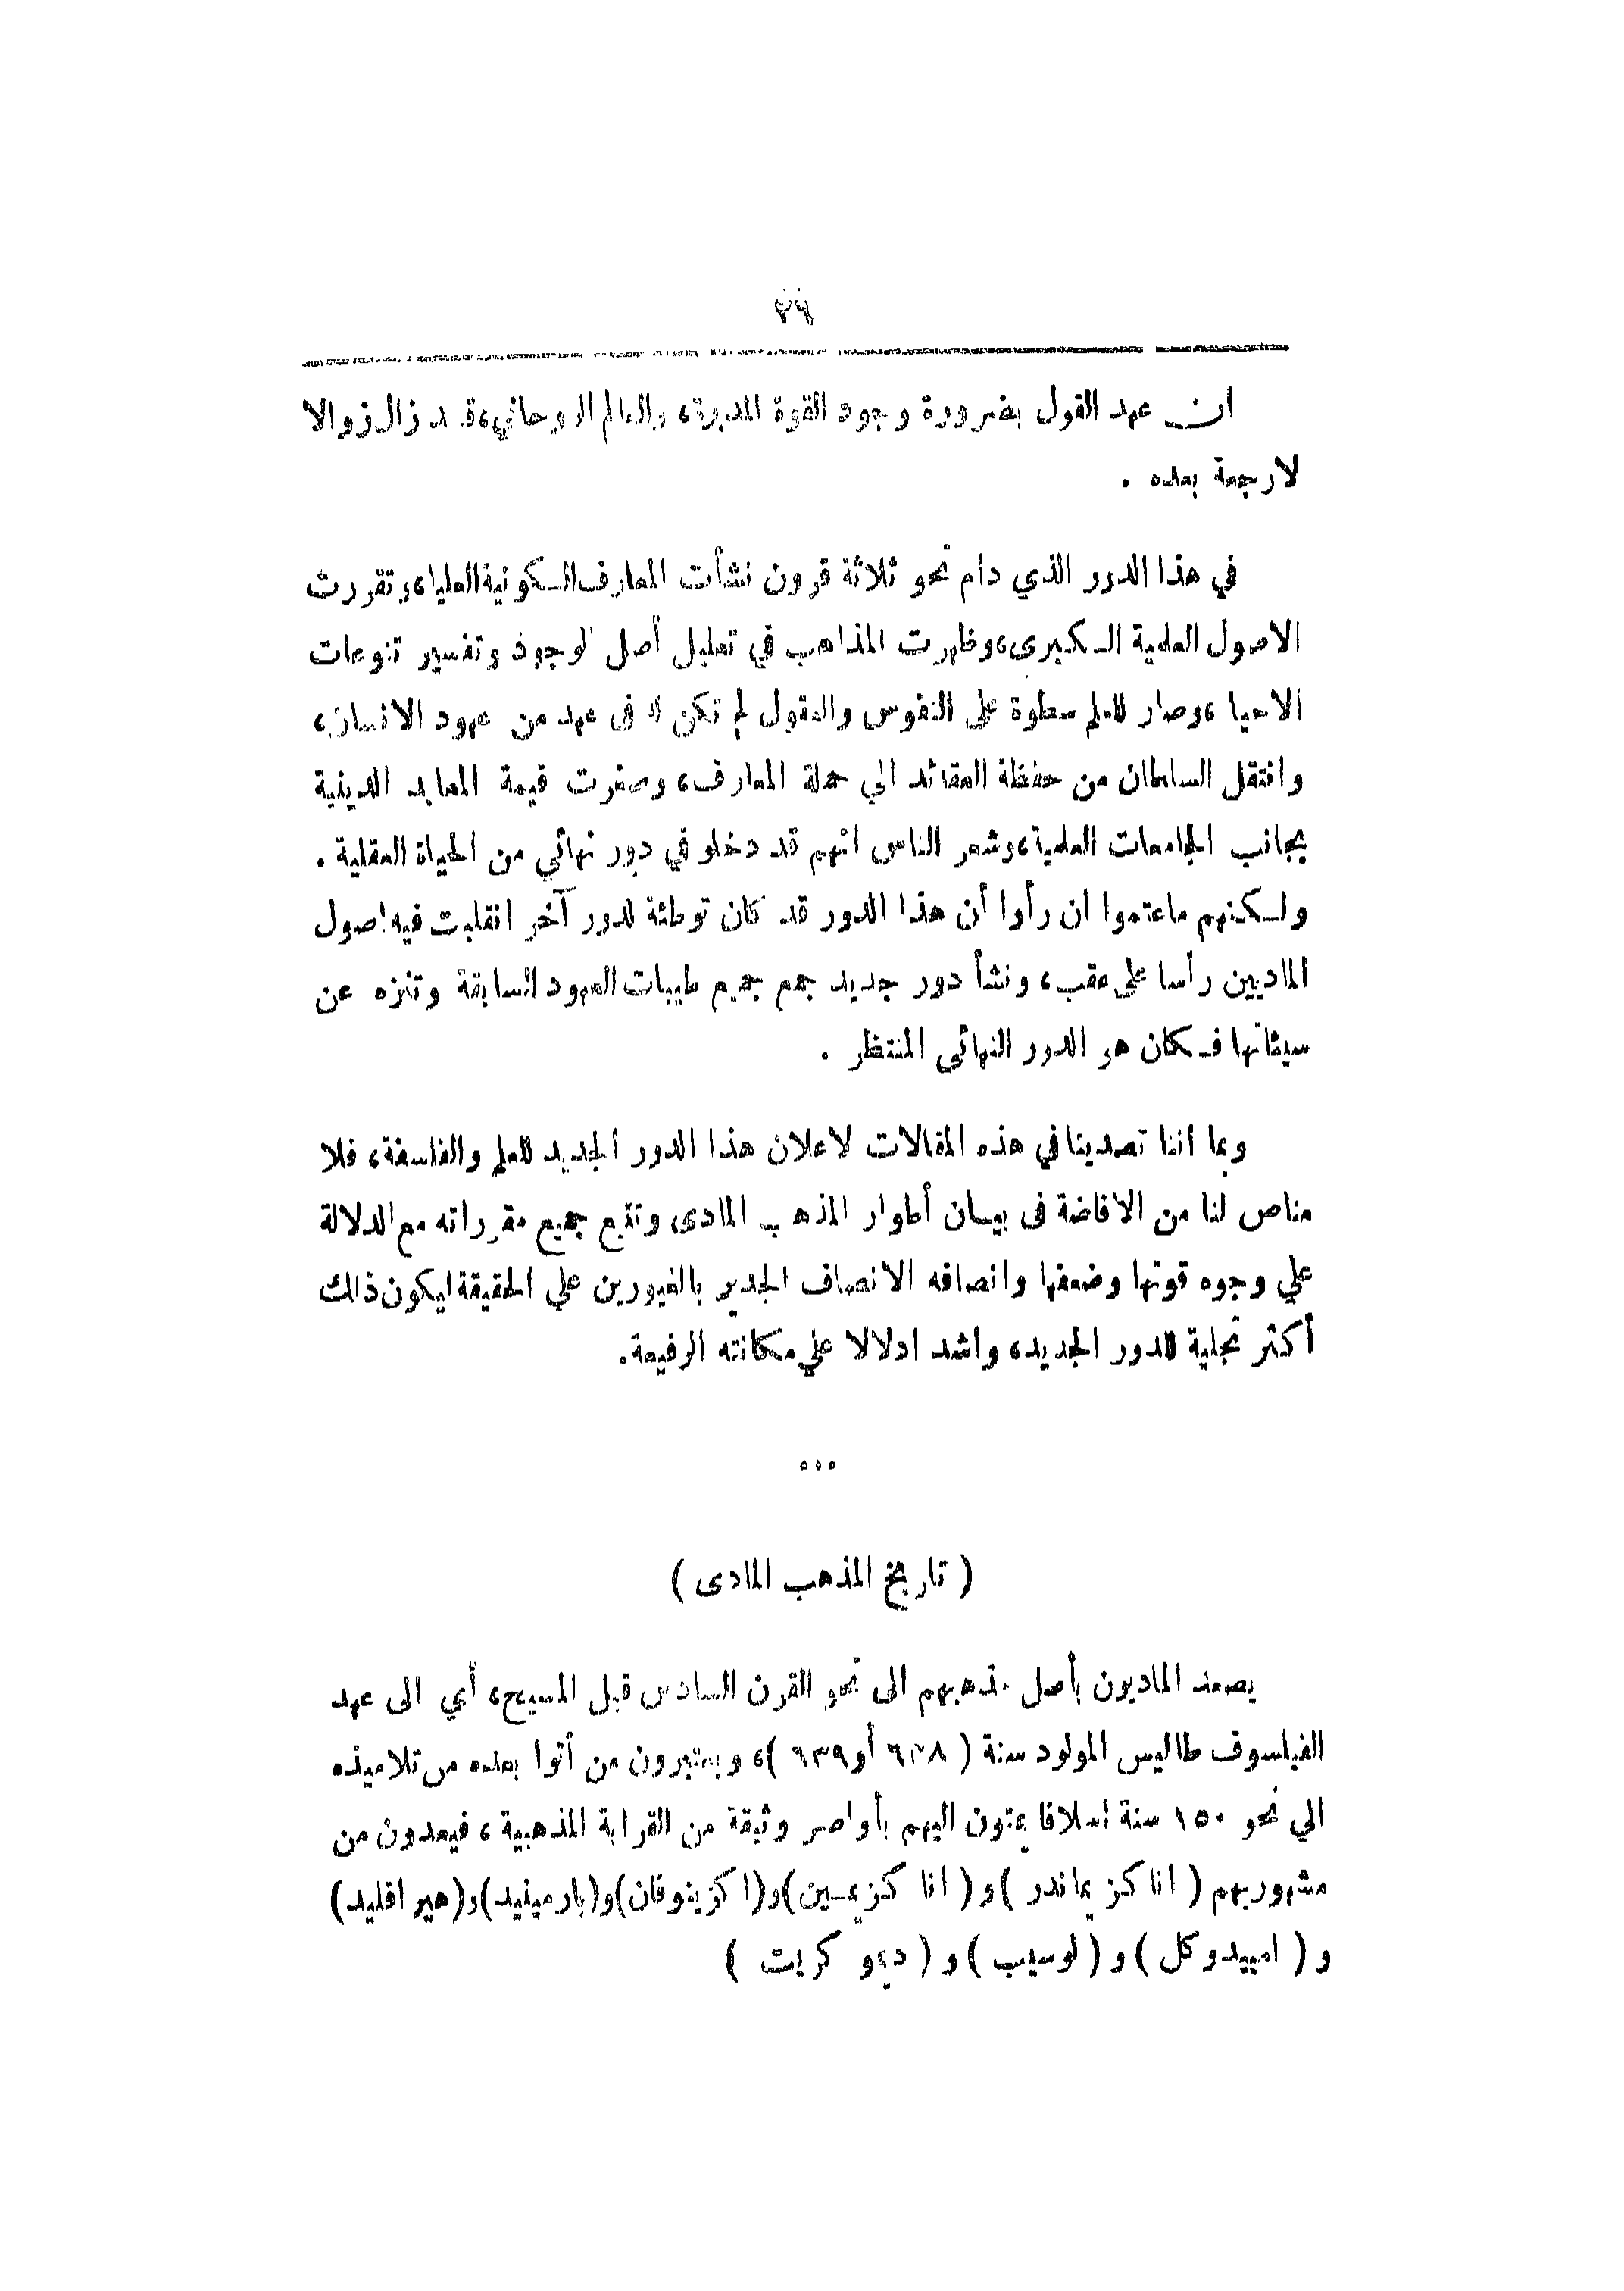 ان عهد القول بضرورة وجود القوة المدبرة، والعالم الروحاني، قد زال زوالا
لارجعة بعده .
في هذا الدور الذي دام نحو ثلاثة قرون نشأت المعارف الكونية العليا، وتقررت
الاصول العلمية الكبرى، وظهرت المذاهب في تعليل أصل الوجود وتفسير تنوعات
الاحياء، وصار للعلم سطوة على النفوس والعقول لم تكن له فى عهد من عهود الانسان،
وانتقل السلطان من حفظة العقائد الي حملة المعارف، وصغرت قيمة المعابد الدينية
بجانب الجامعات العلمية، وشعر الناس انهم قد دخلو في دور نهائي من الحياة العقلية .
ولكنهم ماعتموا ان رأوا أن هذا الدور قد كان توطئة لدور آخر انقلبت فيه اصول
الماديين رأسا على عقب، ونشأ دور جديد جمع جميع طيبات العهود السابقة وتنزه عن
سيئاتها فكان هو الدور النهائى المنتظر .
وبما اننا تصدينا في هذه المقالات لاعلان هذا الدور الجديد للعلم والفلسفة، فلا
مناص لنا من الافاضة فى بيان أطوار المذهب المادى وتتبع جميع مقرراته مع الدلالة
علي وجوه قوتها وضعفها وانصافه الانصاف الجدير بالغيورين علي الحقيقة ليكون ذلك
أكثر تجلية للدور الجديد، واشد ادلالا علي مكانته الرفيعة.
...
( تاريخ المذهب المادى )
يصعد الماديون بأصل مذهبهم الى نحو القرن السادس قبل المسيح، أي الى عهد
الفيلسوف طاليس المولود سنة ( ٦٣٨ أو ٦٣٩ )، ويعتبرون من أتوا بعده من تلاميذه
الي نحو ١٥٠ سنة اسلافا يمتون اليهم بأواصر وثيقة من القرابة المذهبية، فيعدون من
مشهوريهم ( اناكزيماندر ) و ( انا كزيمين ) و(اكزينوفان) و(بارمينيد) و(هيراقليد)
و ( امبيدوكل ) و ( لوسيب ) و ( ديمو كريت )